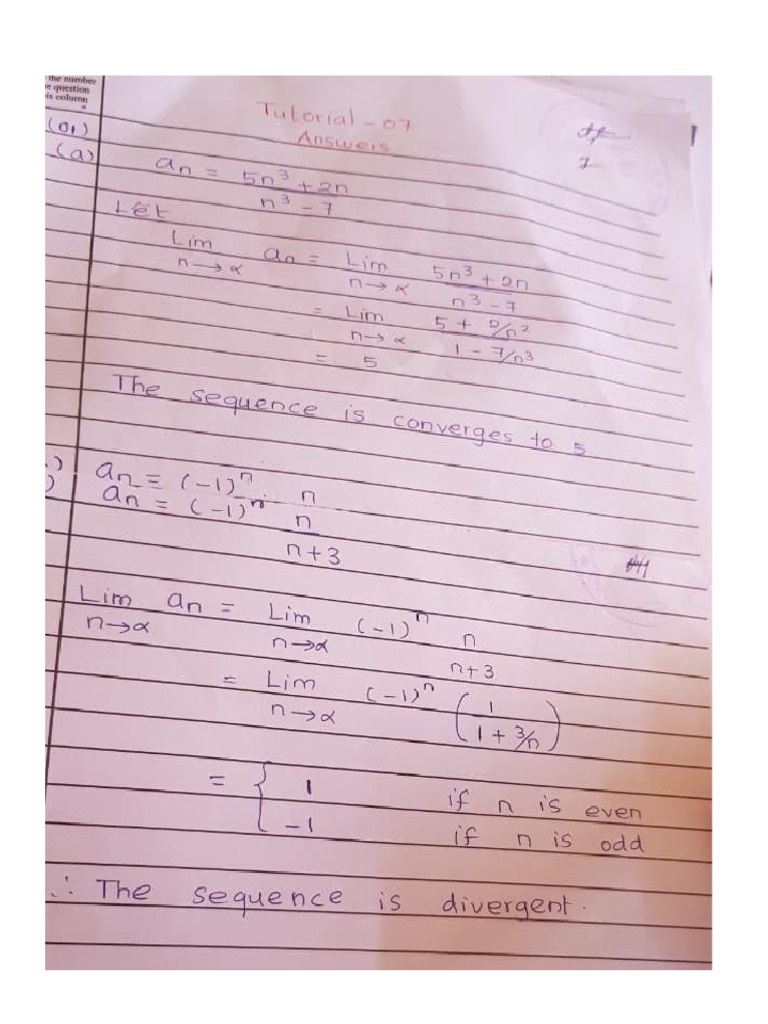 the number
e question
is column
Tutorial - 07
Answers
(01)
(a)
an = 5n³ + 2n
n³ - 7
Let
Lim an = Lim 5n³ + 2n
n→α n→α n³ - 7
= Lim 5 + 2/n²
n→α 1 - 7/n³
= 5
The sequence is converges to 5
an = (-1)ⁿ n
an = (-1)ⁿ n
n+3
Lim an = Lim (-1)ⁿ n
n→α n→α n+3
= Lim (-1)ⁿ (1
n→α 1 + 3/n)
= { 1 if n is even
-1 if n is odd
∴ The sequence is divergent.